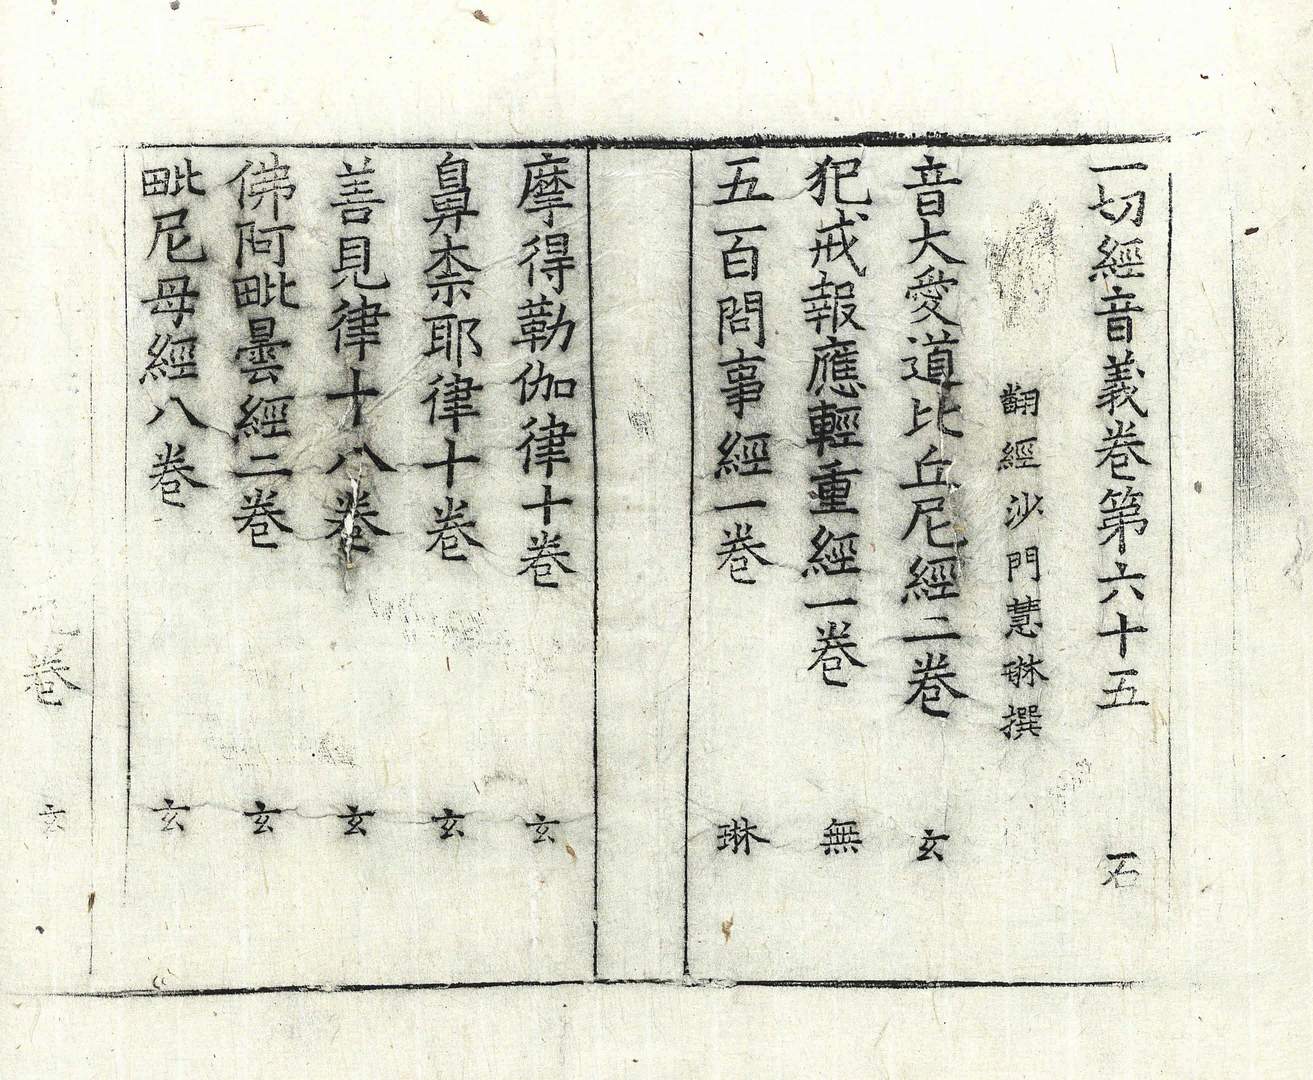 一切經音義卷第六十五 石
翻經沙門慧琳撰
音大愛道比丘尼經二卷 玄
犯戒報應輕重經一卷 無
五百問事經一卷 琳
摩得勒伽律十卷 玄
鼻柰耶律十卷 玄
善見律十八卷 玄
佛阿毗曇經二卷 玄
毗尼母經八卷 玄
卷 玄